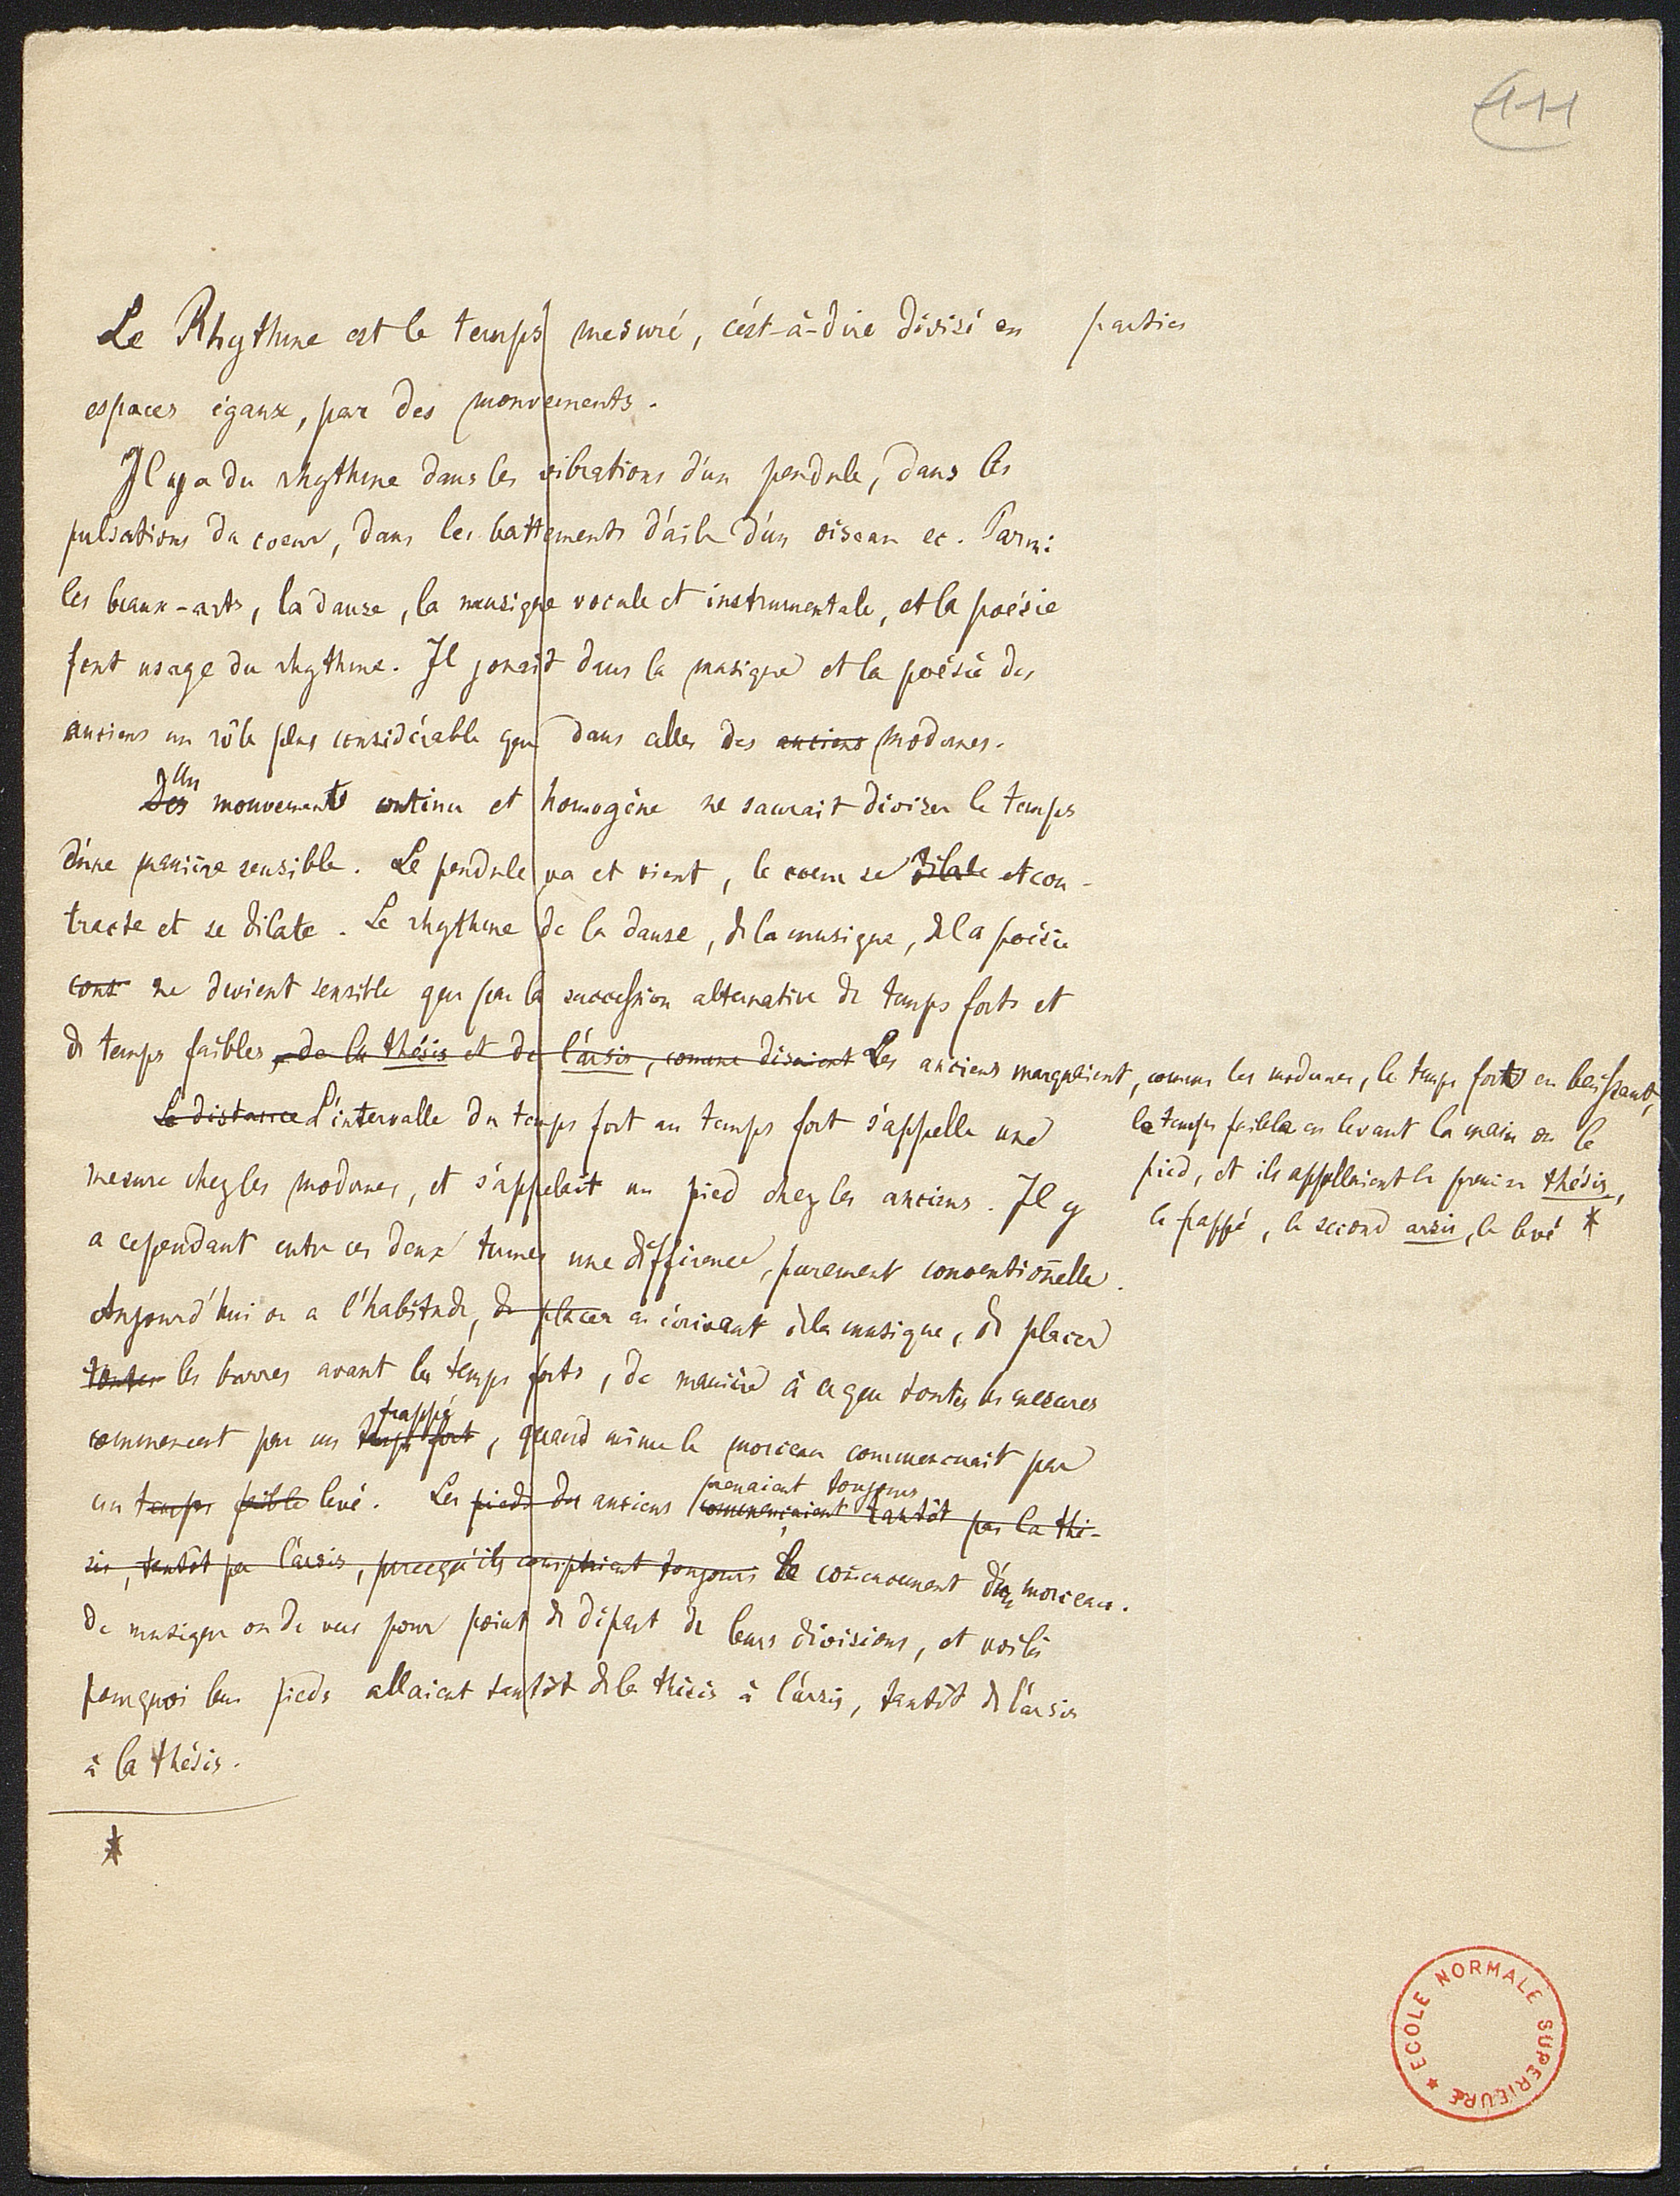 111
Le Rhythme est le temps mesuré, c'est-à-dire divisé en parties
espaces égaux, par des mouvements.
Il y a du rhythme dans les vibrations d'un pendule, dans les
pulsations du coeur, dans les battements d'aile d'un oiseau ec. Parmi
les beaux-arts, la danse, la musique vocale et instrumentale, et la poésie
font usage du rhythme. Il jouait dans la musique et la poésie des
anciens un rôle plus considérable que dans celles des anciens modernes.
Un
Des mouvements continu et homogène ne saurait diviser le temps
d'une manière sensible. Le pendule va et vient, le coeur se dilate et con-
tracte et se dilate. Le rhythme de la danse, de la musique, de la poésie
cons ne devient sensible que par la succession alternative de temps forts et
de temps faibles, de la thésis et de l'arsis, comme disaient Les anciens marquaient, comme les modernes, le temps forts en baissant,
le temps faible en levant la main ou le
pied, et ils appellaient le premier thésis,
le frappé, le second arsis, le levé *
Le distance L'intervalle du temps fort au temps fort s'appelle une
mesure chez les modernes, et s'appelait un pied chez les anciens. Il y
a cependant entre ces deux termes une différence, purement conventionelle.
Aujourd'hui on a l'habitude, de placer en écrivant de la musique, de placer
toutes les barres avant les temps forts, de manière à ce que toutes les mesures
frappé
commencent par un temps fort, quand même le morceau commencerait par
un temps faible levé. Les pieds des anciens commençaient tantôt par la thé-
prenaient toujours
sis, tantôt par l'arsis, parcequ'ils comptaient toujours le commencement d'un morceau.
de musique ou de vers pour point de départ de leurs divisions, et voilà
pourquoi leurs pieds allaient tantôt de la thésis à l'arsis, tantôt de l'arsis
à la thésis.
*
ECOLE NORMALE SUPERIEURE